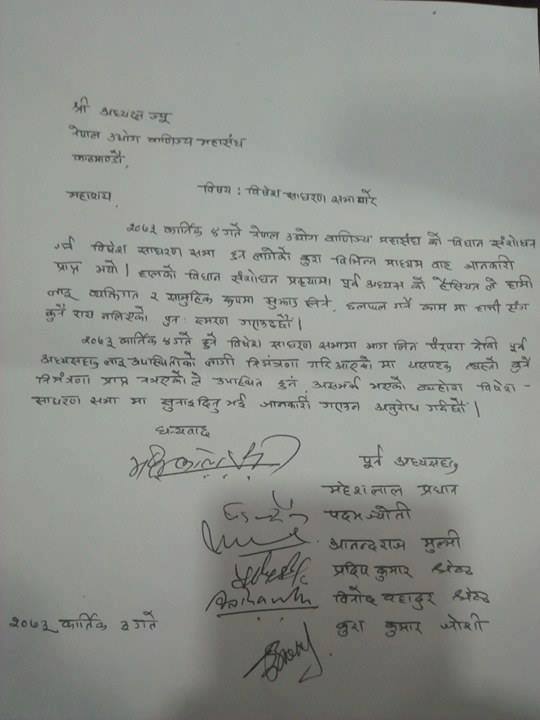 श्री अध्यक्ष ज्यू
नेपाल उधोग वाणिज्य महासंघ
काठमाण्डौ,
विषय : विषेश साधरण सभा बारे
महाशय,
२०७३ कार्तिक ४ गते नेपाल उधोग वाणिज्य महासंघ को विधान संशोधन
गर्न विषेश साधारण सभा हुन लागेको कुरा विभिन्न माध्यम बाट जानकारी
प्राप्त भयो । हालको विधान संशोधन प्रकृयामा पूर्व अध्यक्ष को हैसियत ले हामी
लाई व्यक्तिगत र सामुहिक रूपमा सुझाव लिने, छलफल गर्ने काम मा हामी संग
कुनै राय नलिएको पुनः स्मरण गराउदछौं ।
२०७३ कार्तिक ४ गते हुने विषेश साधारण सभामा भाग लिन परंपरा देखी पूर्व
अध्यक्षहरु लाई उपस्थितीको लागी निमंत्रणा गरि आएको मा यसपटक त्यस्तो कुनै
निमंत्रणा प्राप्त नभएको ले उपस्थित हुन असमर्थ भएको व्यहोरा विषेश -
साधारण सभा मा सुनाइदिनु भई जानकारी गराउन अनुरोध गर्दछौं ।
धन्यवाद
पूर्व अध्यक्षहरु
महेशलाल प्रधान
पदम ज्योती
आनन्दराज मुल्मी
प्रदिप कुमार श्रेष्ठ
विनोद बहादुर श्रेष्ठ
कुश कुमार जोशी
२०७३ कार्तिक ३ गते